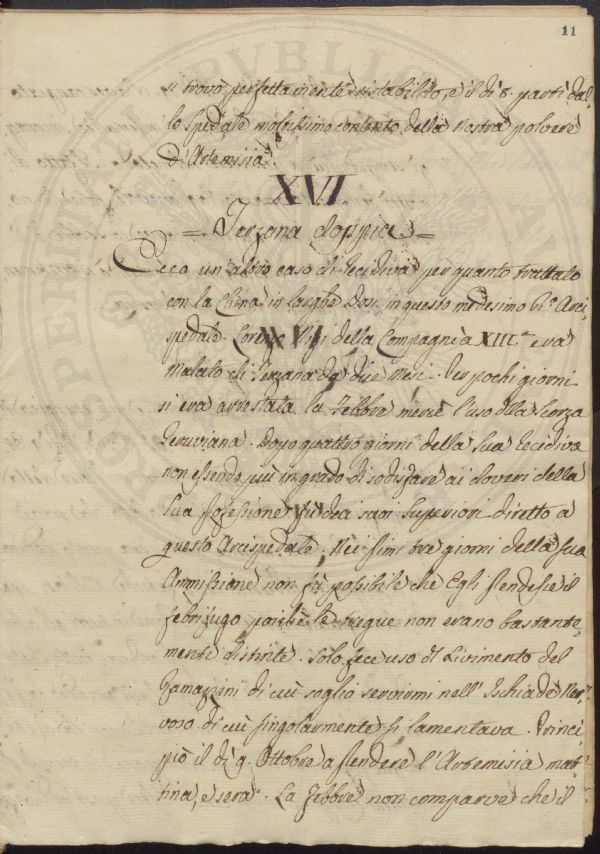 11
si trovò perfettamente ristabilito, e il dì 8. partì dal-
lo Spedale moltissimo contento della nostra polvere
d'Artemisia.
XVI.
= Terzana doppia =
Ecco un'altro caso di recidiva per quanto trattato
con la China in larghe Dosi in questo medesimo Ci.o Arci-
spedale. Lorenzo Vigi della Compagnia XIII.a era
Malato di Terzana da due Mesi. Per pochi giorni
si era arrestata la Febbre mercè l'uso della Scorza
Peruviana. Dopo quattro giorni della Sua Recidiva
non essendo più in grado di sodisfare ai doveri della
Sua professione fù dai suoi Superiori diretto a
questo Arcispedale. Nei primi tre giorni della sua
Ammissione non fù possibile che Egli prendesse il
febrifugo poichè le tregue non erano bastante-
mente distinte. Solo fece uso del Linimento del
Ramazzini di cui soglio servirmi nell'Ischiade Ner-
vosa di cui singolarmente si lamentava. Princi-
piò il dì 9. Ottobre a prendere l'Artemisia mat-
tina, e sera. La Febbre non comparve che il